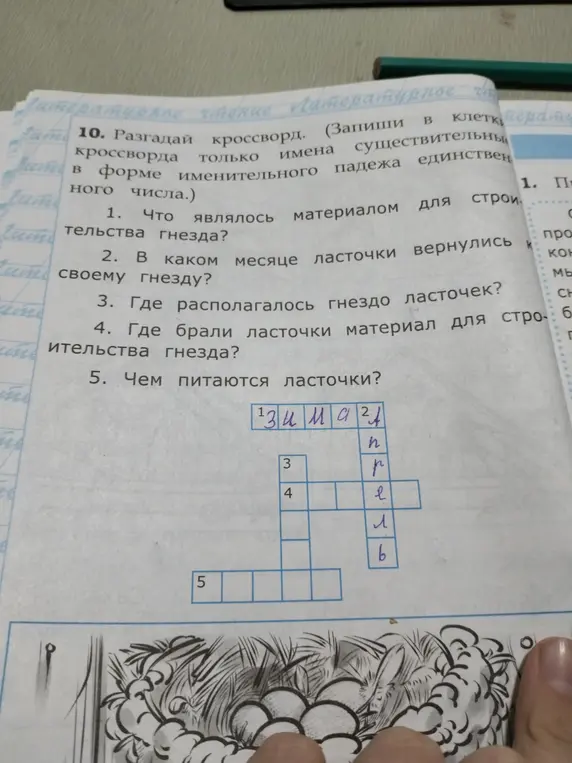 Литературное чтение Литературное
10. Разгадай кроссворд. (Запиши в клетк
кроссворда только имена существительны
в форме именительного падежа единствен
ного числа.)
1. Что являлось материалом для строи-
тельства гнезда?
2. В каком месяце ласточки вернулись к
своему гнезду?
3. Где располагалось гнездо ласточек?
4. Где брали ласточки материал для стро-
ительства гнезда?
5. Чем питаются ласточки?
1 з и м а 2 А
п
3 р
4 е
л
ь
5
1.